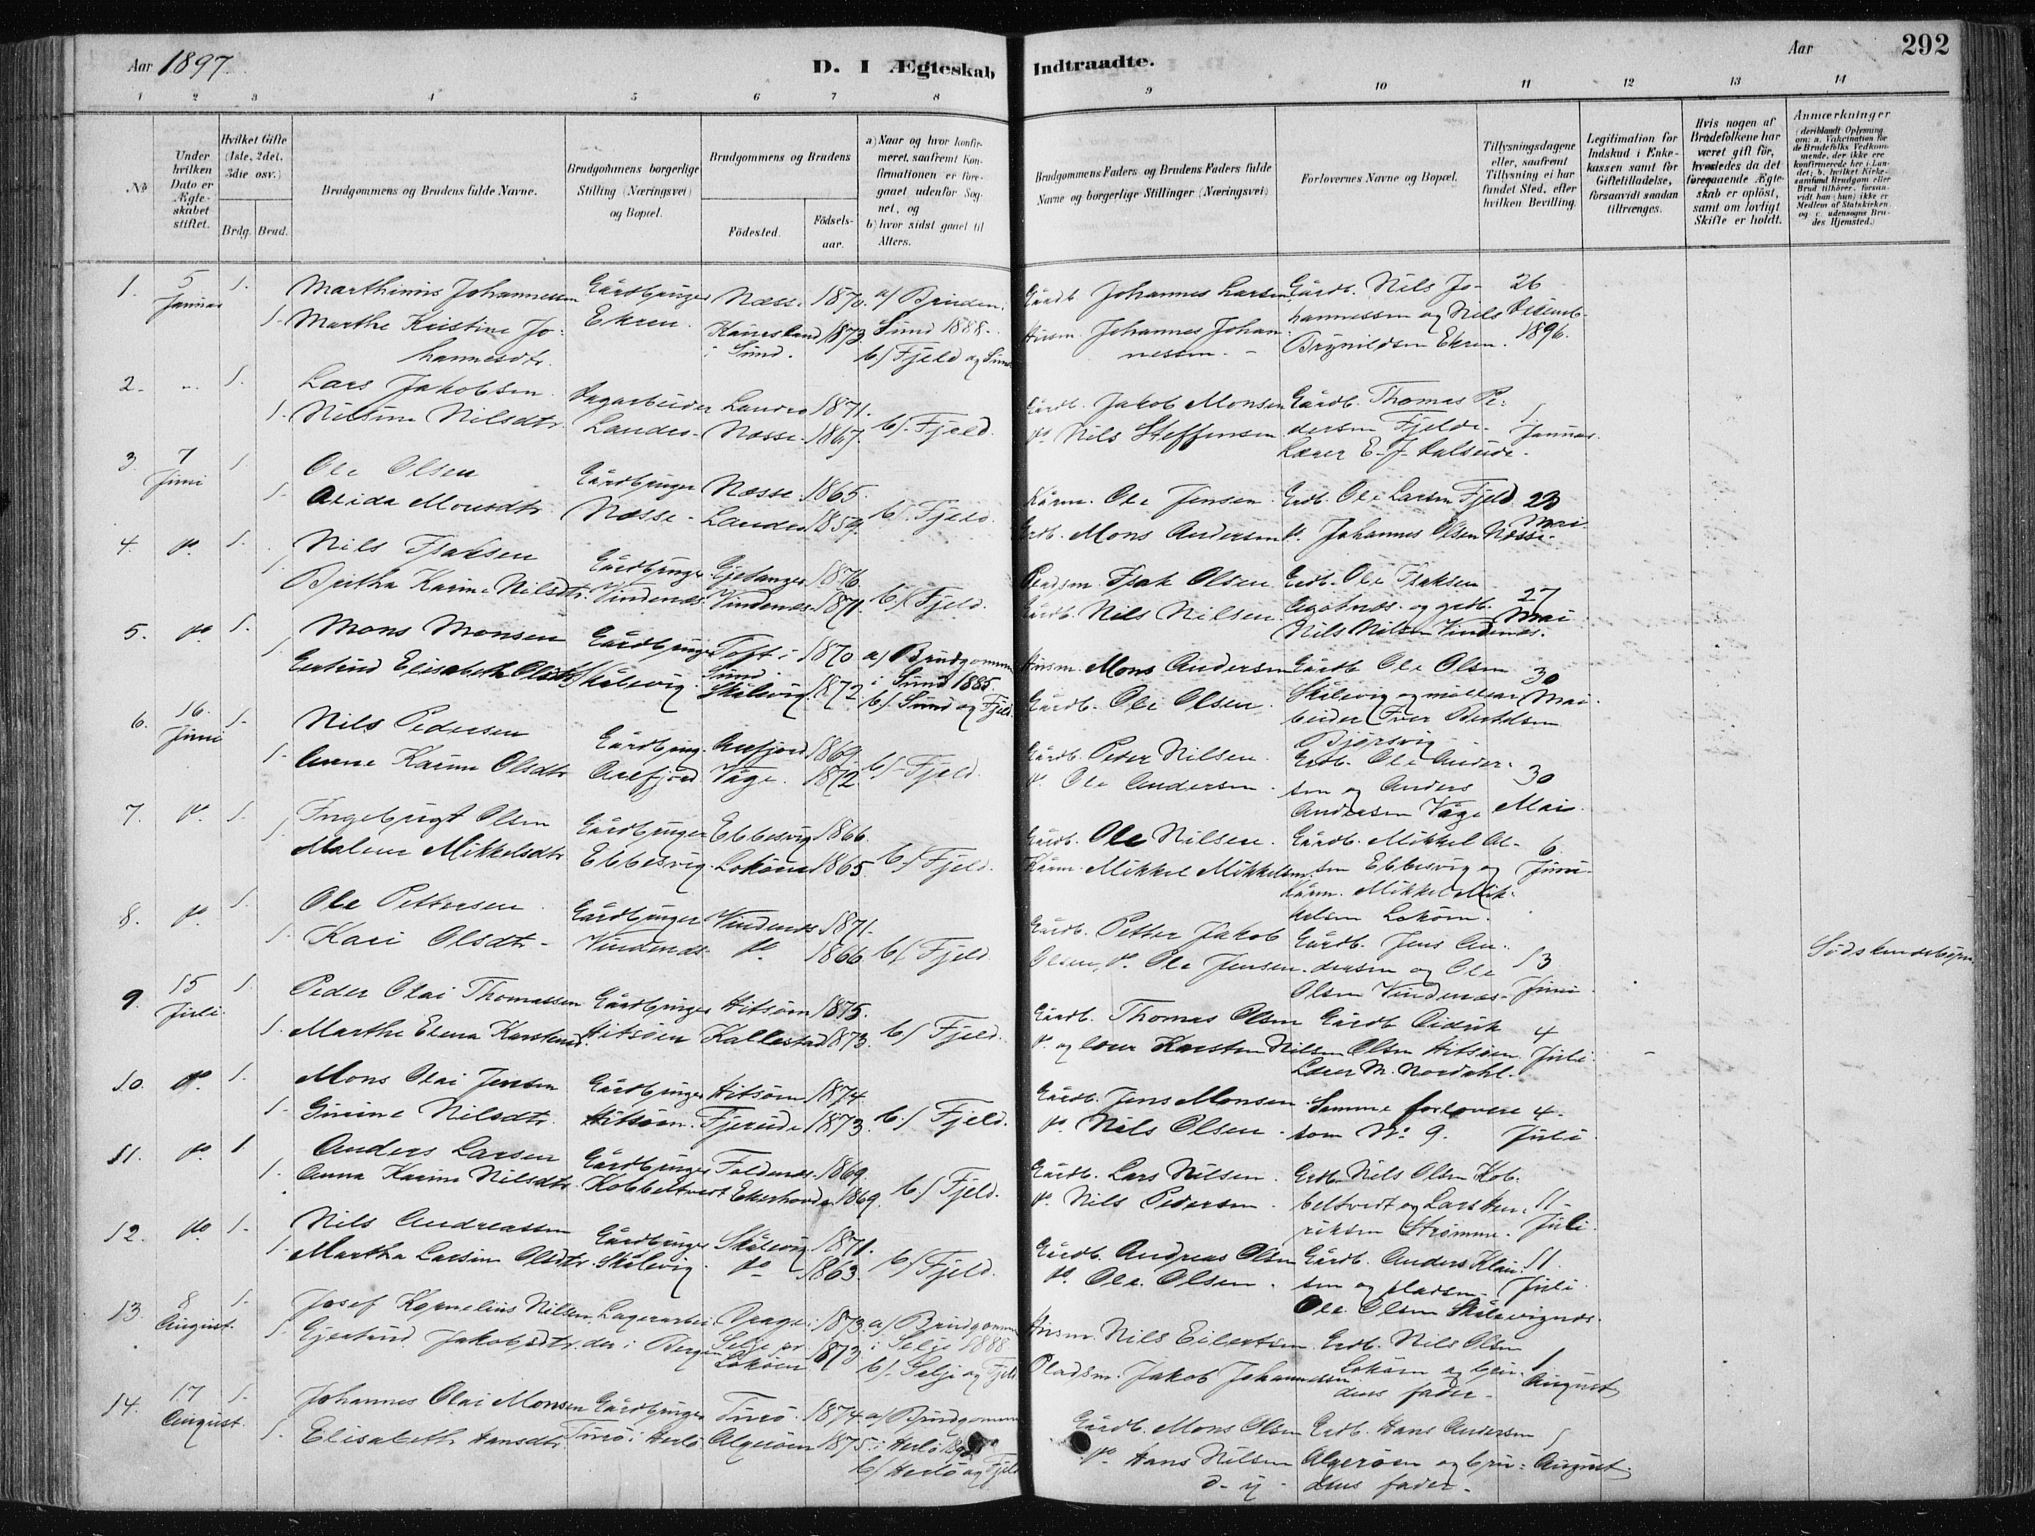 Aar 1897.
D. I Ægteskab Indtraadte.
Aar
292
1 2 3 4 5 6 7 8 9 10 11 12 13 14
No
Under hvilken Dato er Ægteskabet stiftet.
Hvilket Gifte (1ste, 2det, 3die osv.)
Brdg. Brud.
Brudgommens og Brudens fulde Navne.
Brudgommens borgerlige Stilling (Næringsvei) og Bopæl.
Brudgommens og Brudens
Fødested.
Fødselsaar.
a) Naar og hvor konfirmeret, saafremt Konfirmationen er foregaaet udenfor Sognet, og
b) hvor sidst gaaet til Alters.
Brudgommens Faders og Brudens Faders fulde Navne og borgerlige Stillinger (Næringsvei)
Forlovernes Navne og Bopæl.
Tillysningsdagene eller, saafremt Tillysning ei har fundet Sted, efter hvilken Bevilling.
Legitimation for Indskud i Enkekassen samt for Giftetilladelse, forsaavidt saadan tiltrænges.
Hvis nogen af Brudefolkene har været gift før, hvorledes da det foregaaende Ægteskab er opløst, samt om lovligt Skifte er holdt.
Anmærkninger
1. 5 Januar 1. Marthinius Johannessen Gårdbruger Næsse 1870. a) Bruden.
1. Marthe Kristine Johannesdtr. Ekren. Kausland i Sund. 1873. Sund 1888. b) Fjeld og Sund
Gårdb. Johannes Larsen Gårdb. Nils Johannessen og Nils Brynildsen Ekren. 26 Desemb. 1896.
Husm. Johannes Johannessen
2. 1. Lars Jakobsen Dagarbeider Landro 1871.
1. Nilsine Nilsdtr. Landro Næsse 1867. b) Fjeld.
Gårdb. Jakob Monsen Gårdb. Thomas Pedersen Fjelde. Lærer E. J. Dalseide. 1 Januar.
do Nils Steffensen
3. 7 Juni 1. Ole Olsen Gårdbruger Næsse 1865.
1. Alida Monsdtr. Næsse Landro 1859. b) Fjeld.
Kårm. Ole Jensen Grdb. Ole Larsen Fjeld 23 Mai
Grdb. Mons Andersen do Johannes Olsen Næsse.
4. do 1. Nils Isaksen Gårdbruger Gjetanger 1876.
1. Bertha Karine Nilsdtr. Vindenæs. Vindenæs. 1871. b) Fjeld.
Pladsm. Isak Olsen Grdb. Ole Isaksen og grdb. 27 Mai
Gårdb. Nils Nilsen Nils Nilsen Vindenæs.
5. do 1. Mons Monsen Gårdbruger Toft i Sund 1870 a) Brudgommen
1. Gertrud Elisabeth Olsdtr. Skålevig. Skålevig. 1872. i Sund 1885. b) Sund og Fjeld.
Husm. Mons Andersen Gårdb. Ole Olsen 30 Mai
Gårdb. Ole Olsen. Skålevig og møllearbeider Iver Bertelsen Bjørsvig
6. 16. Juni 1. Nils Pedersen Gårdbrug. Arefjord 1869.
1. Anne Karine Olsdtr. Arefjord Våge. 1872. b) Fjeld.
Gårdb. Peder Nilsen. Grdb. Ole Andersen og Anders Andersen Våge 30 Mai
do Ole Andersen
7. do 1. Ingebrigt Olsen Gårdbruger Ebbesvig 1866.
1. Malene Mikkelsdtr. Ebbesvig. Lokøen 1865. b) Fjeld.
Gårdb. Ole Nilsen. Gårdb. Mikkel Olsen Ebbesvig og 6. Juni
Kårm. Mikkel Mikkelsen. Kårm. Mikkel Mikkelsen Lokøen.
8. do 1. Ole Pettersen Gårdbruger Vindenæs 1871.
1. Kari Olsdtr. Vindenæs. do. 1866. b) Fjeld
Gårdb. Petter Jakob Olsen, Gårdb. Jens Andersen og Ole Olsen Vindenæs. 13 Juni
do. Ole Jensen
Sødskendebørn.
9. 15 Juli 1. Peder Olai Thomassen Gårdbruger Hitsøen 1875.
1. Marthe Elena Karstensd. Hitsøen Kallestad 1873. b) Fjeld.
Gårdb. Thomas Olsen Gårdb. Didrik Olsen Hitsøen. 4 Juli
do og Karsten Nilsen Lærer M. Nordahl.
10. do. 1. Mons Olai Jensen Gårdbruger Hitsøen 1874.
1. Gurine Nilsdtr. Hitsøen. Fjereide 1873. b) Fjeld.
Gårdb. Jens Monsen Samme forlovere som No. 9. 4. Juli
do Nils Olsen
11. do. 1 Anders Larsen Gårdbruger Foldnæs 1869.
1. Anna Karine Nilsdtr. Kobbeltvedt Ekerhovde 1869. b) Fjeld.
Gårdb. Lars Nilsen. Grdb. Nils Olsen Kobbeltvedt og Lars Henriksen Strømme. 11 Juli.
do. Nils Pedersen
12. do 1. Nils Andreassen Gårdbruger Skålevig 1871.
1. Martha Larsine Olsdtr. Skålevig. do 1863. b) Fjeld.
Gårdb. Andreas Olsen Gårdb. Anders 11. Juli
do. Ole Olsen. Ole Olsen Skålevignæs.
13. 8 August. 1. Josef Kornelius Nilsen Lagerarbeider i Bergen Drage i Selje 1873. a) Brudgommen
1. Gjertrud Jakobsdtr. Lokøen 1873. i Selje 1888 b) Selje og Fjeld
Husm. Nils Eilertsen. Grdb. Nils Olsen Lokøen og brudens fader. 1 August
Pladsm. Jakob Johannessen.
14. 17 August. 1. Johannes Olai Monsen Gårdbruger Turø 1874. a) Brudgommen
1. Elisabeth Hansdtr. Turø i Herlø Algerøen 1875. i Herlø b) Herlø og Fjeld
Gårdb. Mons Olsen Grdb. Hans Andersen Algerøen og brudens fader. 1 August.
do. Hans Nilsen